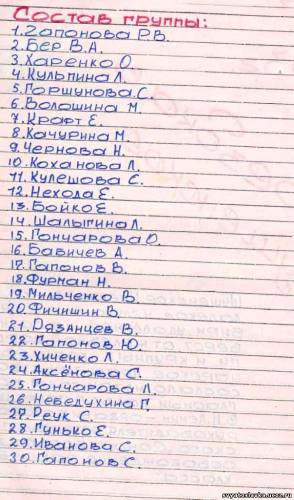 Состав группы:
1. Гапонова Р.В.
2. Бер В.А.
3. Харенко О.
4. Кульпина Л.
5. Горшунова С.
6. Волошина М.
7. Крафт Е.
8. Качурина М.
9. Чернова Н.
10. Коханова Л.
11. Кулешова С.
12. Нехода Е.
13. Бойко Е.
14. Шалыгина Л.
15. Гончарова О.
16. Бабичев А.
17. Гапонов В.
18. Фурман Н.
19. Мильченко В.
20. Фичишин В.
21. Рязанцев В.
22. Гапонов Ю.
23. Хиченко Л.
24. Аксёнова С.
25. Гончарова Л.
26. Небедухина Г.
27. Реук С.
28. Гунько Е.
29. Иванова С.
30. Гапонов С.
svyatoslovka.ucoz.ru